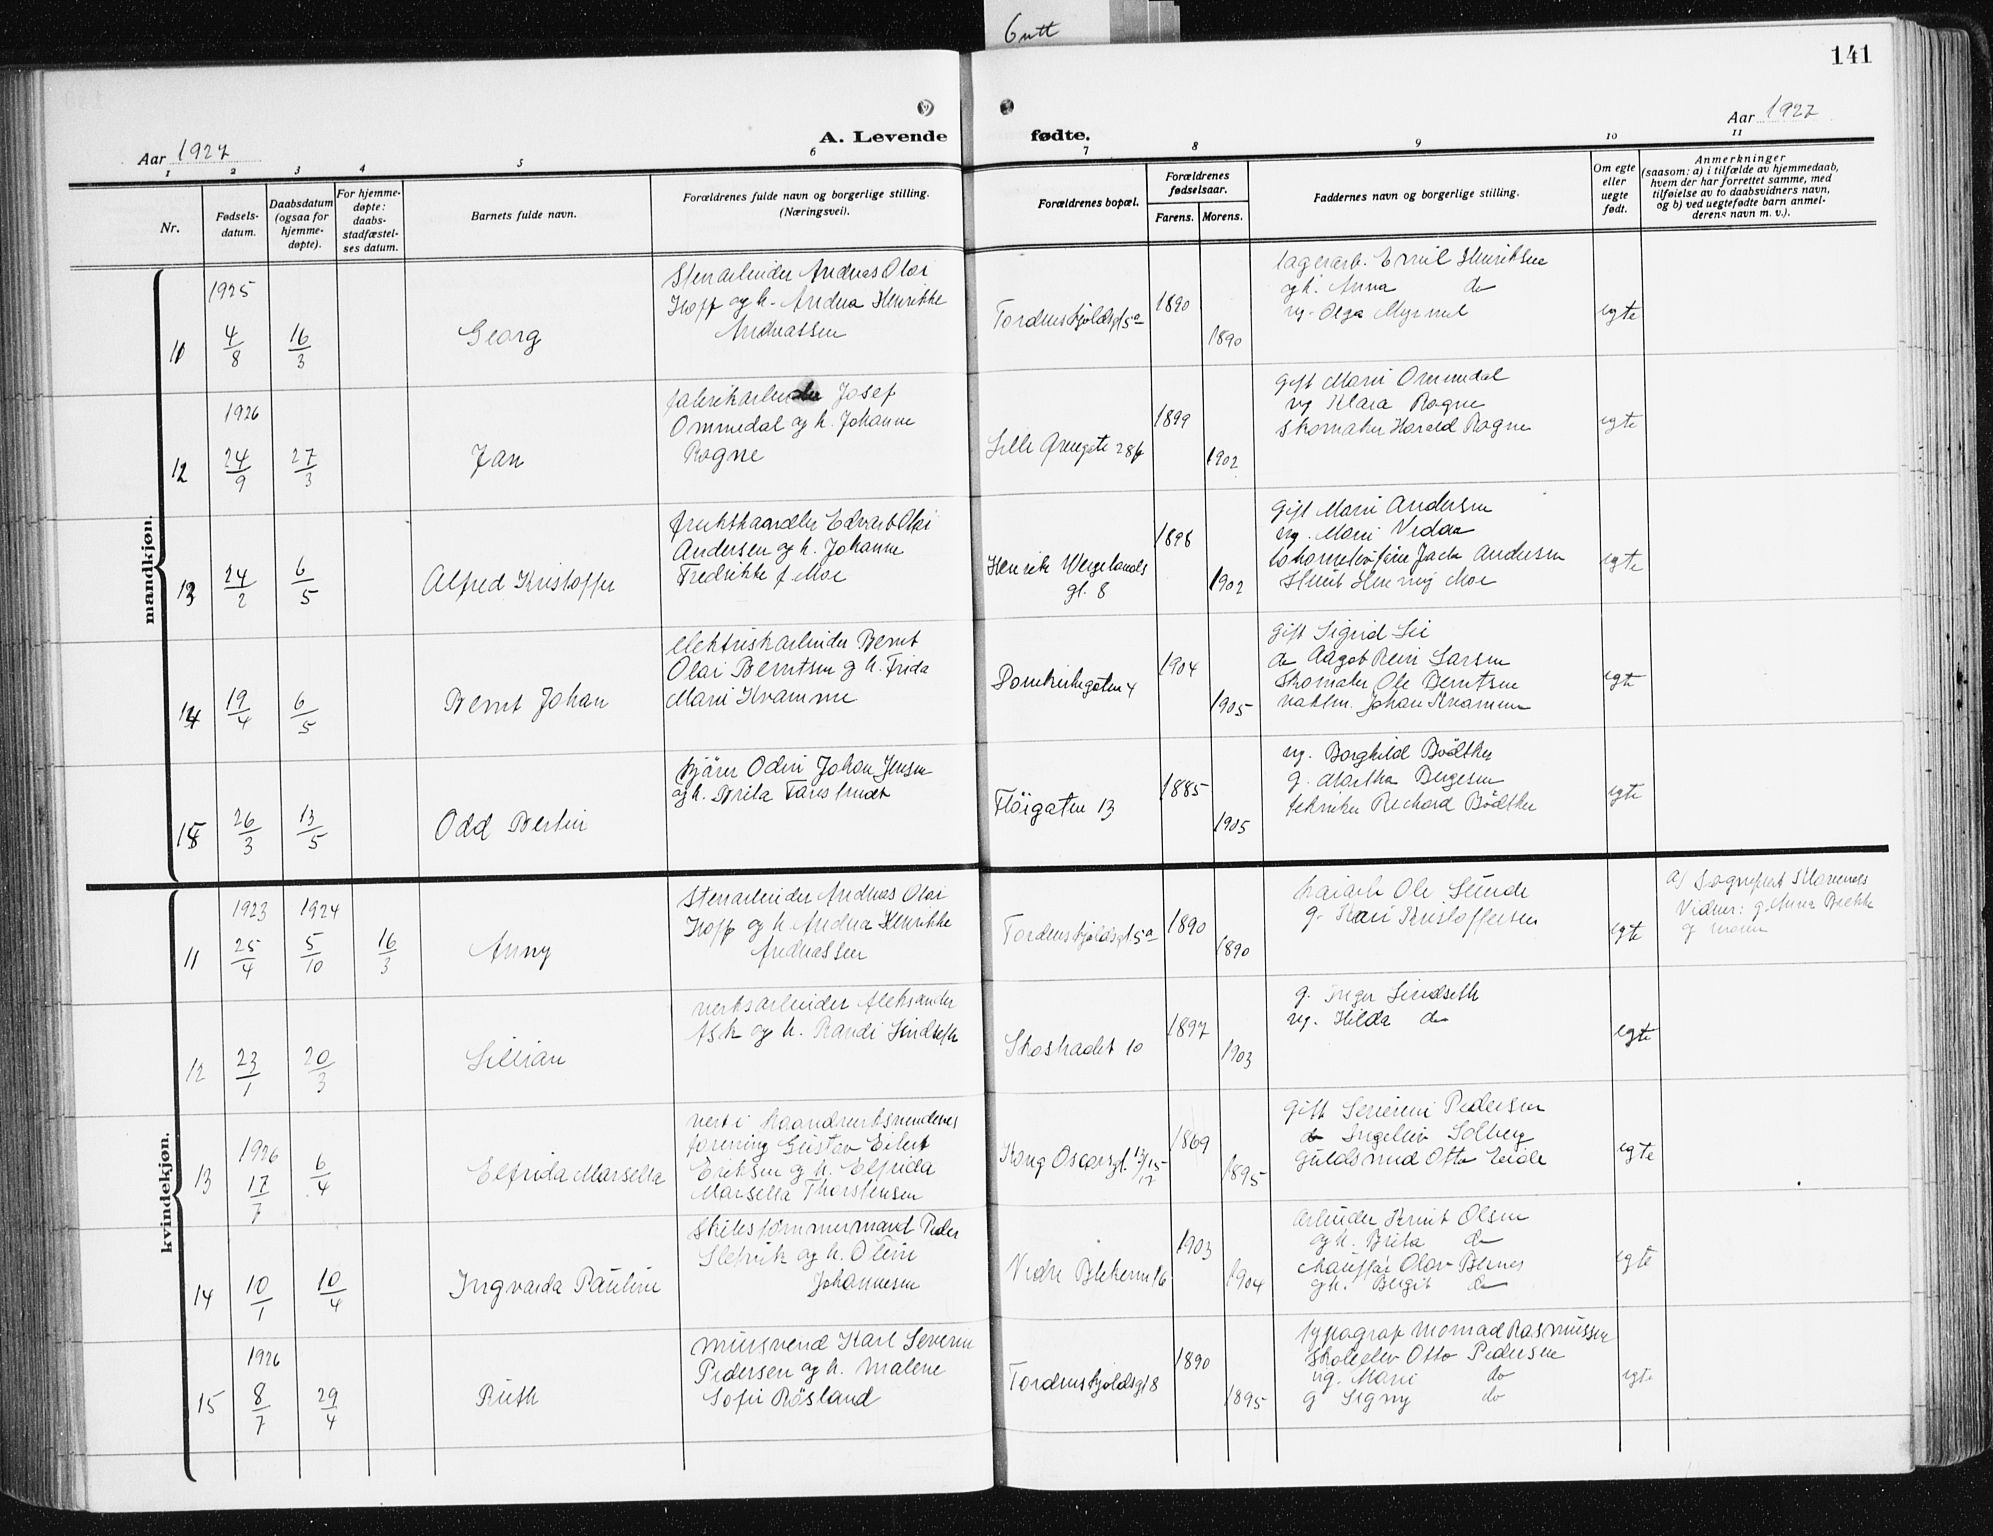 Gutt
141
Aar 1927
A. Levende fødte.
Aar 1927
1 2 3 4 5 6 7 8 9 10 11
Nr.
Fødsels-
datum.
Daabsdatum
(ogsaa for
hjemme-
døpte).
For hjemme-
døpte:
daabs-
stadfæstel-
ses datum.
Barnets fulde navn.
Forældrenes fulde navn og borgerlige stilling.
(Næringsvei).
Forældrenes bopæl.
Forældrenes
fødselsaar.
Farens. Morens.
Faddernes navn og borgerlige stilling.
Om egte
eller
uegte
født.
Anmerkninger
(saasom: a) i tilfælde av hjemmedaab,
hvem der har forrettet samme, med
tilføielse av to daabsvidners navn,
og b) ved uegtefødte barn anmel-
derens navn m. v.).
mandkjøn.
11
1925
4/8
16/3
Georg
Stenarbeider Andreas Olai
Hopp og h. Andrea Henrikke
Andreassen
Tordenskjoldsgt 5a
1890
1890
lagerarb. Emil Henriksen
og h. Anna do
ug. Olga Myrmel
egte
12
1926
24/9
27/3
Jan
fabrikarbeider Josef
Ommedal og h. Johanne
Rogne
Lille Øvregate 28b
1899
1902
gift Marie Ommedal
ug Klara Rogne
skomaker Harald Rogne
egte
13
24/2
6/5
Alfred Kristoffer
frukthandler Edvart Olai
Andersen og h. Johanne
Fredrikke f. Moe
Henrik Wergelands
gt. 8
1898
1902
gift Marie Andersen
ug. Marie Vedaa
lokomotivfører Jack Andersen
Henning Moe
egte
14
19/4
6/5
Bernt Johan
elektriskarbeider Bernt
Olai Berntsen og h. Frida
Marie Kvamme
Domkirkegaten 4
1904
1905
gift Sigrid Lie
do Aagot Larsen
Skomaker Ole Berntsen
Johan Kvamme
egte
15
26/3
13/5
Odd Bertin
kjører Odin Johan Jensen
og h. Brita
Fløigaten 13
1885
1905
ug. Borghild Bødtker
g. Martha Bergesen
tekniker Richard Bødtker
egte
kvindekjøn.
11
1923
25/4
1924
5/10
16/3
Anny
Stenarbeider Andreas Olai
Hopp og h. Andrea Henrikke
Andreassen
Tordenskjoldsgt 5a
1890
1890
Ole Sunde
g. Kari Kristoffersen
egte
a) Sogneprest Klaveness
Vidner: g. Anna Brekke
og moren
12
23/1
20/3
Lillian
verksarbeider Aleksander
Ask og h. Randi Lindseth
Skostrædet 10
1897
1903
g. Inger Lindseth
ug. Hilda do
egte
13
1926
17/7
6/4
Elfrida Marsella
vert i Haandverksvendenes
forening Gustav Eilert
Eriksen og h. Elfrida
Marsella Thorstensen
Kong Oscarsgt. 13/15-17
1869
1895
gift Pedersen
do Ingeleiv Solberg
Guldsmed Otto Eide
egte
14
10/1
10/4
Ingvarda Pauline
Skibstømmermand Peder
Slefvik og h. Oline
Johannesen
Vestre 16
1903
1904
arbeider Knut Olsen
og h. Brita do
chauffør Olav Bernes
og h. Bergit do
egte
15
1926
8/7
29/4
Ruth
mursvend Karl Severin
Pedersen og h. Malene
Sofie Røsland
Tordenskjoldsgt 8
1890
1895
typograf Monrad Rasmussen
skoleelev Otto Pedersen
ug. Marie do
g Signy do
egte